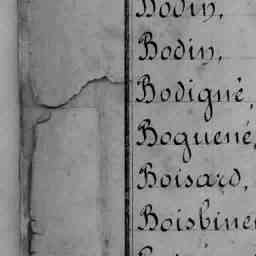 Bodin,
Bodin,
Bodigné,
Boguené,
Boisard,
Boisbine